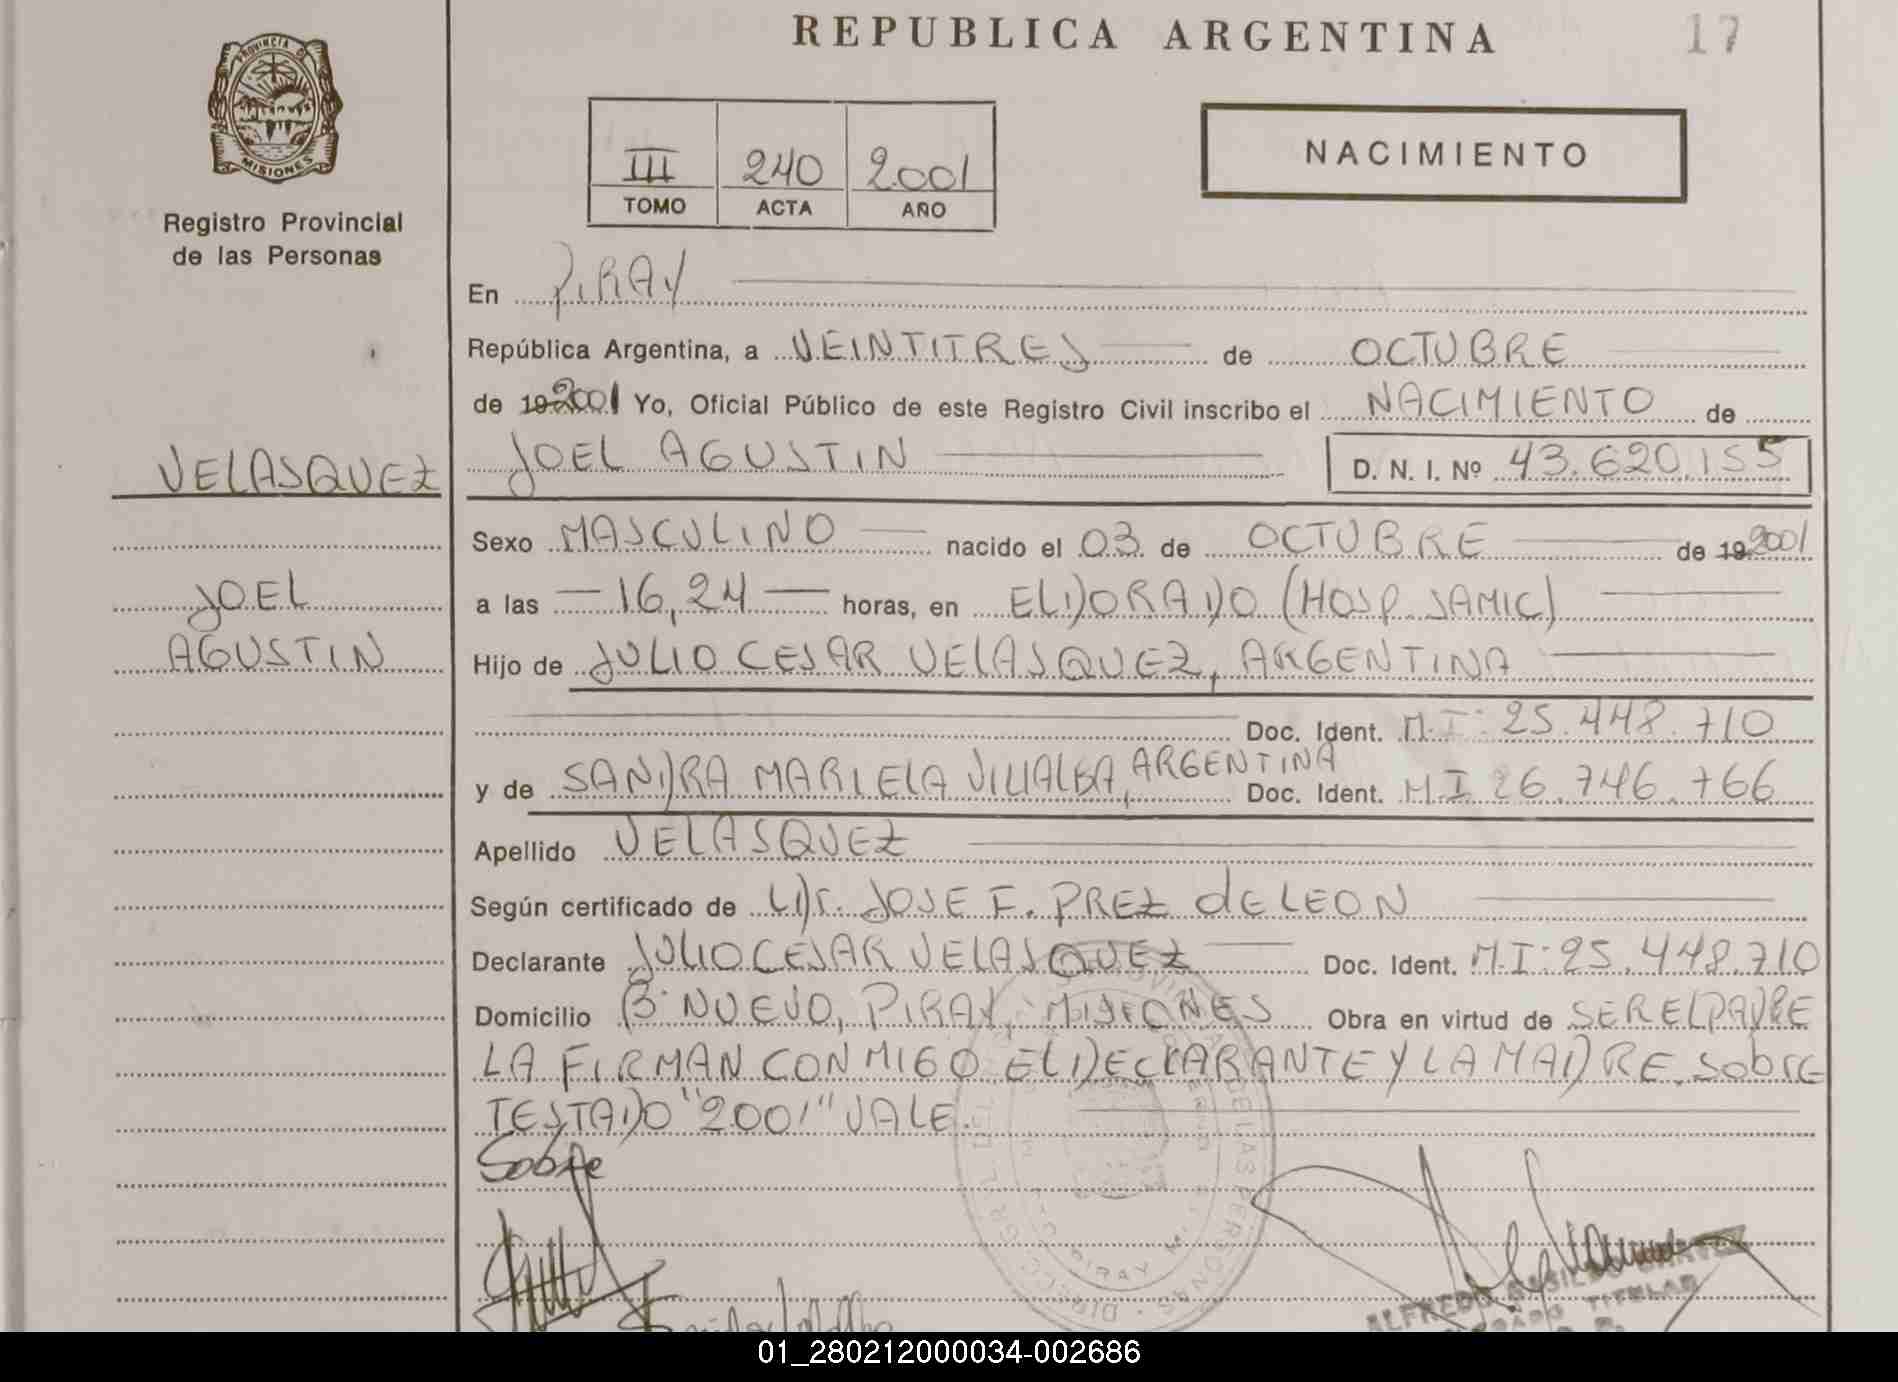 REPUBLICA ARGENTINA
17
PROVINCIA DE
MISIONES
Registro Provincial
de las Personas
III 240 2001
TOMO ACTA AÑO
NACIMIENTO
En PIRAY
República Argentina, a VEINTITRES de OCTUBRE
de 19 2001 Yo, Oficial Público de este Registro Civil inscribo el NACIMIENTO de
VELASQUEZ
JOEL AGUSTIN D. N. I. Nº 43.620.155
Sexo MASCULINO nacido el 03 de OCTUBRE de 19 2001
JOEL
a las 16,24 horas, en ELDORADO (HOSP. SAMIC)
AGUSTIN
Hijo de JULIO CESAR VELASQUEZ, ARGENTINA
Doc. Ident. M.I: 25.448.710
y de SANDRA MARIELA VILLALBA, ARGENTINA Doc. Ident. M.I 26.746.766
Apellido VELASQUEZ
Según certificado de JOSE F. PREZ de LEON
Declarante JULIO CESAR VELASQUEZ Doc. Ident. M.I: 25.448.710
Domicilio Bº NUEVO, PIRAY, MISIONES Obra en virtud de SER EL PADRE
LA FIRMAN CONMIGO EL DECLARANTE Y LA MADRE. Sobre
TESTADO "2001" VALE.
Sobre
ALFREDO
TITULAR
01_280212000034-002686